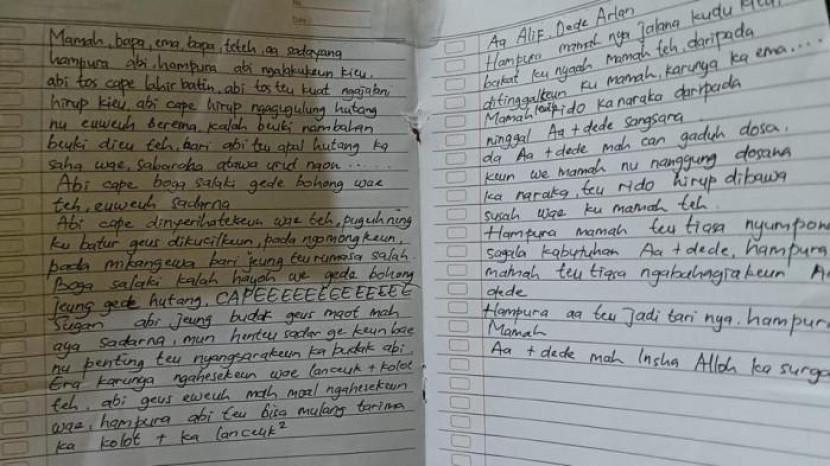 Mamah, bapa, ema, bapa, teteh, aa sadayana
hampura abi, hampura abi ngalakukeun kieu.
abi tos cape lahir batin, abi tos teu kuat ngajalani
hirup kieu, abi cape hirup ngagugulung hutang
nu euweuh berema, kalah beuki nambahan
beuki dieu teh, bari abi teu apal hutang ka
saha wae, sabaraha atawa urut naon ......
Abi cape boga salaki gede bohong wae
teh, euweuh sadarna
Abi cape dinyerihatekeun wae teh, puguh ning
ku batur geus dikucilkeun, pada ngomongkeun,
pada mikangewa bari jeung teu rumasa salah.
Boga salaki kalah hayoh we gede bohong
jeung gede hutang, CAPEEEEEEEEEEEEE
Sugan abi jeung budak geus maot mah
aya sadarna, mun henteu sadar ge keun bae
nu penting teu nyangsarakeun ka budak abi
Era karunya ngahesekeun wae lanceuk + kolot
teh, abi geus eweuh mah moal ngahesekeun
wae, hampura abi teu bisa mulang tarima
ka kolot + ka lanceuk²
Aa Alif, Dede Arlan
Hampura mamah nya jalana kudu kieu,
bakat ku nyaah mamah teh, daripada
ditinggalkeun ku mamah, karunya ka ema....
Mamah rido ka naraka daripada
ninggal Aa + dede sangsara
da Aa + dede mah can gaduh dosa,
keun we mamah nu nanggung dosana
ka naraka, teu rido hirup dibawa
susah wae ku mamah teh.
Hampura mamah teu tiasa nyumponan
sagala kabutuhan Aa + dede, hampura
mamah teu tiasa ngabahagiakeun
dede
Hampura aa teu jadi tari nya. hampura
Mamah
Aa + dede mah Insha Alloh ka surga